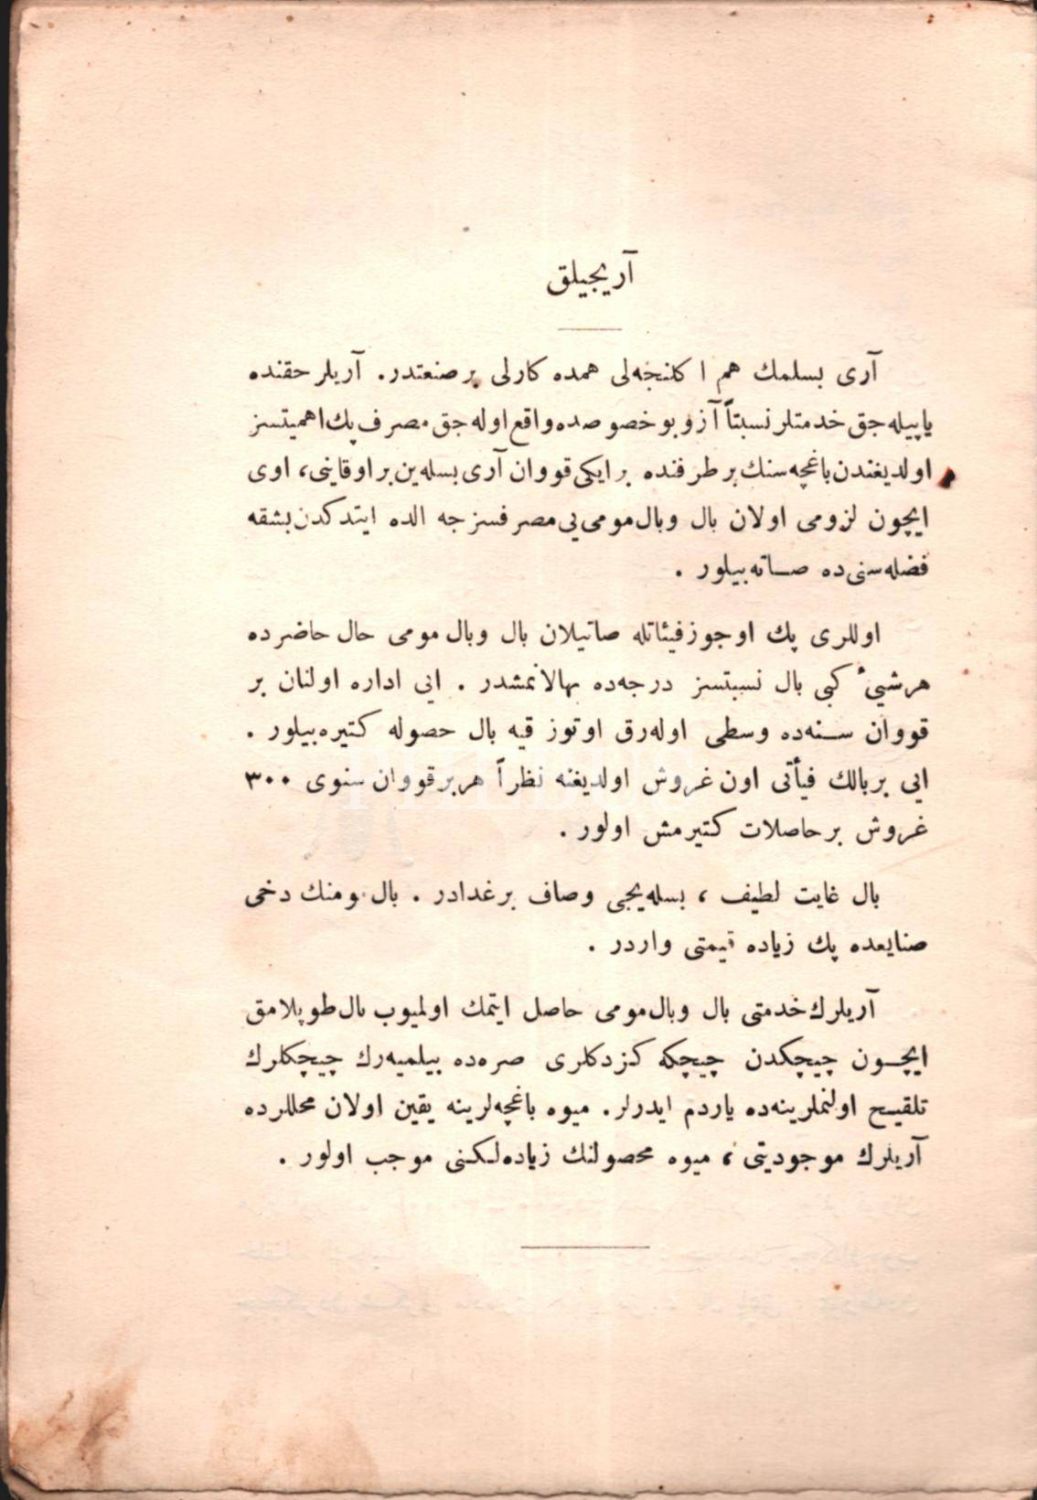 آریجیلق
آری بسلمك هم اكلنجه‌لی همده كارلی بر صنعتدر. آریلر حقنده
یاپیله‌جق خدمتلر نسبتاً آز و بو خصوصده واقع اوله‌جق مصرف پك اهمیتسز
اولدیغندن باغچه‌سنك بر طرفنده بر ایكی قووان آری بسله‌ین بر اوقاینی، اوی
ایچون لزومی اولان بال وبال‌مومی‌یی مصرفسزجه الده ایتدكدن بشقه
فضله‌سنی‌ده صاته‌بیلور .
اوللری پك اوجوز فیئاتله صاتیلان بال وبال مومی حال حاضرده
هر شیئ كبی بال نسبتسز درجه‌ده بهالانمشدر . ایی اداره اولنان بر
قووان سنه‌ده وسطی اوله‌رق اوتوز قیه بال حصوله كتیره‌بیلور .
ایی بر بالك فیأتی اون غروش اولدیغنه نظراً هر بر قووان سنوی ۳۰۰
غروش بر حاصلات كتیرمش اولور .
بال غایت لطیف ، بسله‌ییجی وصاف بر غدادر . بال مومنك دخی
صنایعده پك زیاده قیمتی واردر .
آریلرك خدمتی بال وبال‌مومی حاصل ایتمك اولمیوب بال طوپلامق
ایچون چیچكدن چیچكه كزدكلری صره‌ده بیلمیه‌رك چیچكلرك
تلقیح اولنملرینه‌ده یاردم ایدرلر. میوه باغچه‌لرینه یقین اولان محللرده
آریلرك موجودیتی ، میوه محصولنك زیاده‌لكنی موجب اولور .